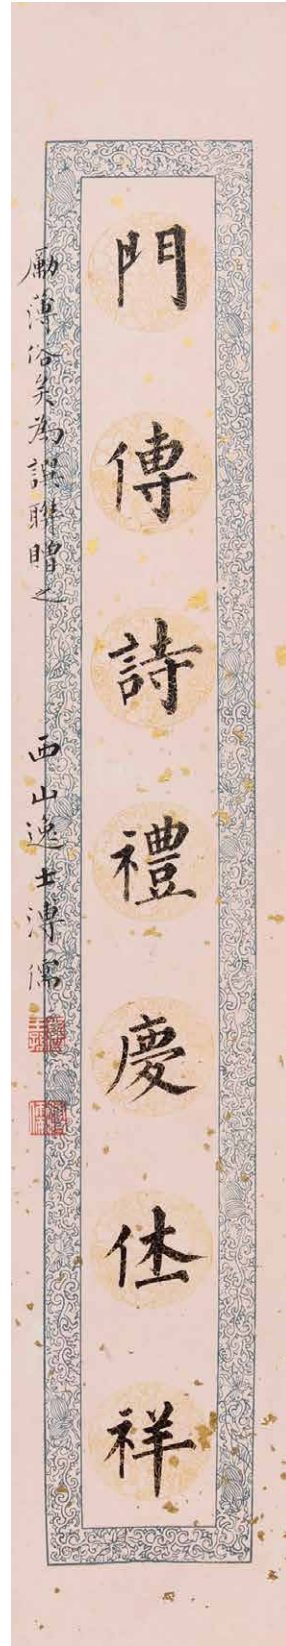 門傳詩禮慶休祥
勵薄俗矣為誤聯贈之
西山逸士溥儒